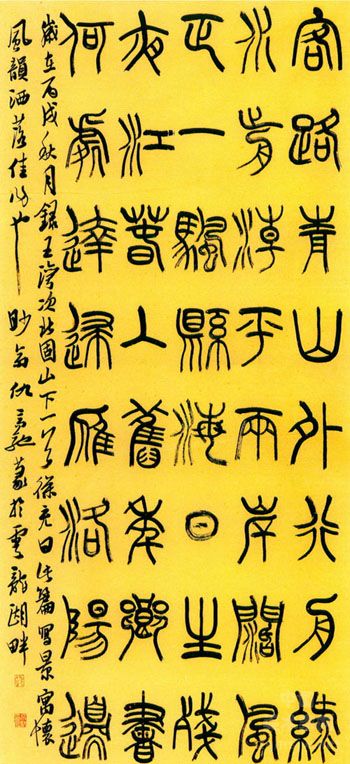 客路青山外行舟綠
水歬潮平兩岸闊風
正一颿縣海日生殘
夜江春入舊年鄉書
何處達歸雁洛陽邊
歲在丙戌秋月錄王灣次北固山下一首徐充曰此篇寫景寓懷
風韻洒落佳作也 篆於雲龍湖畔